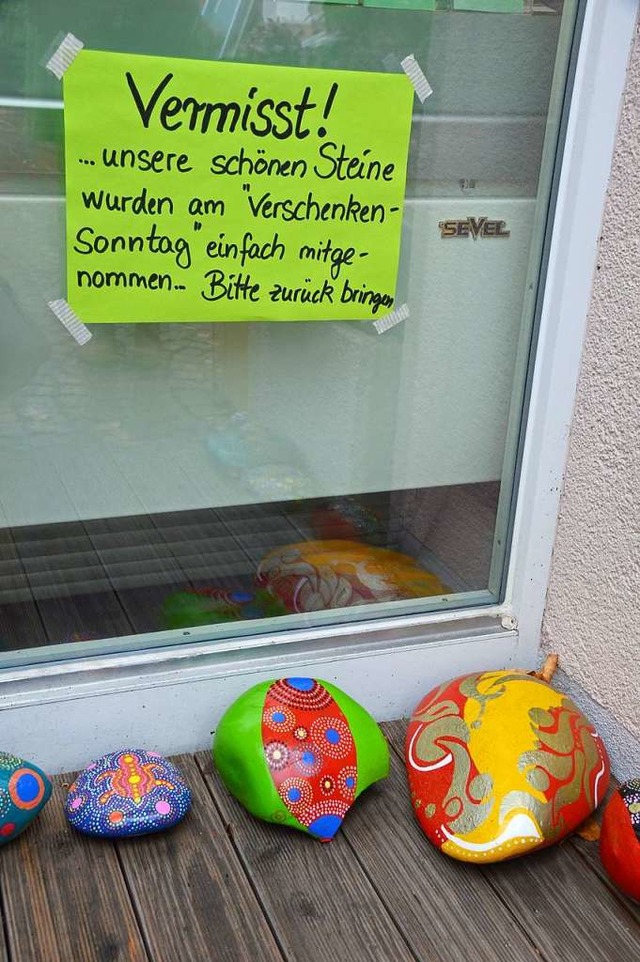 Vermisst!
...unsere schönen Steine
wurden am "Verschenken-
Sonntag" einfach mitge-
nommen... Bitte zurück bringen
SEVEL